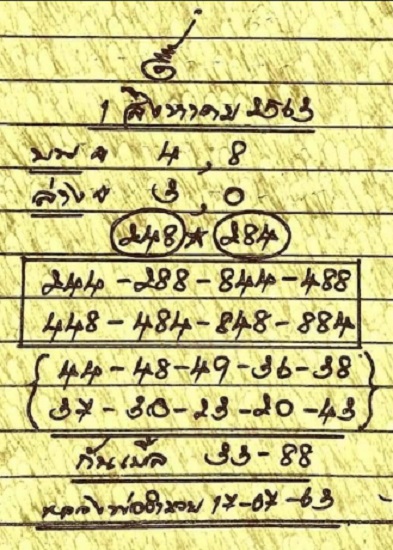 1 สิงหาคม 2563
บน 4, 8
ล่าง 3, 0
248 * 284
244 - 288 - 844 - 488
448 - 484 - 848 - 884
44 - 48 - 49 - 36 - 38
37 - 30 - 23 - 20 - 43
กันเบิ้ล 33 - 88
17-07-63